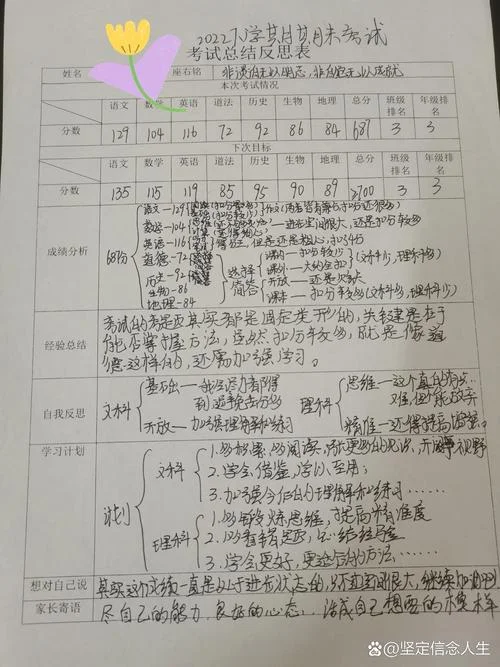 2022下学期期末考试
考试总结反思表
姓名 座右铭 非淡泊无以明志，非宁静无以成就
本次考试情况
语文 数学 英语 道法 历史 生物 地理 总分 班级排名 年级排名
分数 129 104 116 72 92 86 84 687 3 3
下次目标
语文 数学 英语 道法 历史 生物 地理 总分 班级排名 年级排名
分数 135 115 119 85 95 90 89 ≥700 3 3
成绩分析
684分
语文—129
数学—104 —进步空间很大，还是扣分较多
英语—116 但是还是粗心，扣了4分
道德—72
历史—92
生物—86
地理—84
选择
简答
课内—扣分较少 (文科少，理科多)
课外—大约全扣
开放—还是欠缺
课本—扣分较多(文科少，理科多)
经验总结
考试的考题其实都是固定类型的，关键是在于
能否掌握方法，虽然扣分较多，就是像道
德这样的，还需加强学习。
自我反思
文科
基础—我会尽力
开放—加强理解和练习
理科
思维—这个真的有点
难，但不能放弃
精准—还得提高
学习计划
计划
文科
1.多积累，多阅读，开阔视野
2.学会借鉴，学以至用；
3.加强今后的理解和练习……
理科
1.多锻炼思维，提高精准度
2.以看错题，总结经验
3.学会更好、更适合的方法……
想对自己说 其实这个成绩一直是处于进步状态的，只不过空间很大，继续加油吧！
家长寄语 尽自己的能力，良好的心态，活成自己想要的模样
@坚定信念人生